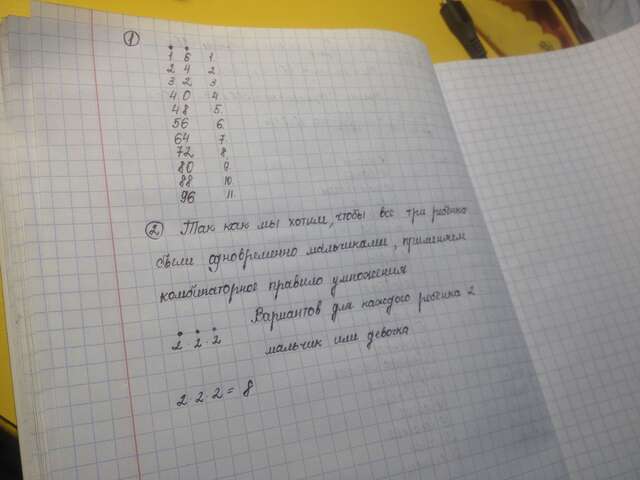 1
1 6 1.
2 4 2.
3 2 3
4 0 4.
4 8 5.
56 6.
64 7.
72 8.
80 9.
88 10.
96 11.
2 Так как мы хотим, чтобы все три ребенка
были одновременно мальчиками, применяем
комбинаторное правило умножения
2 · 2 · 2 Вариантов для каждого ребенка 2
мальчик или девочка
2 · 2 · 2 = 8